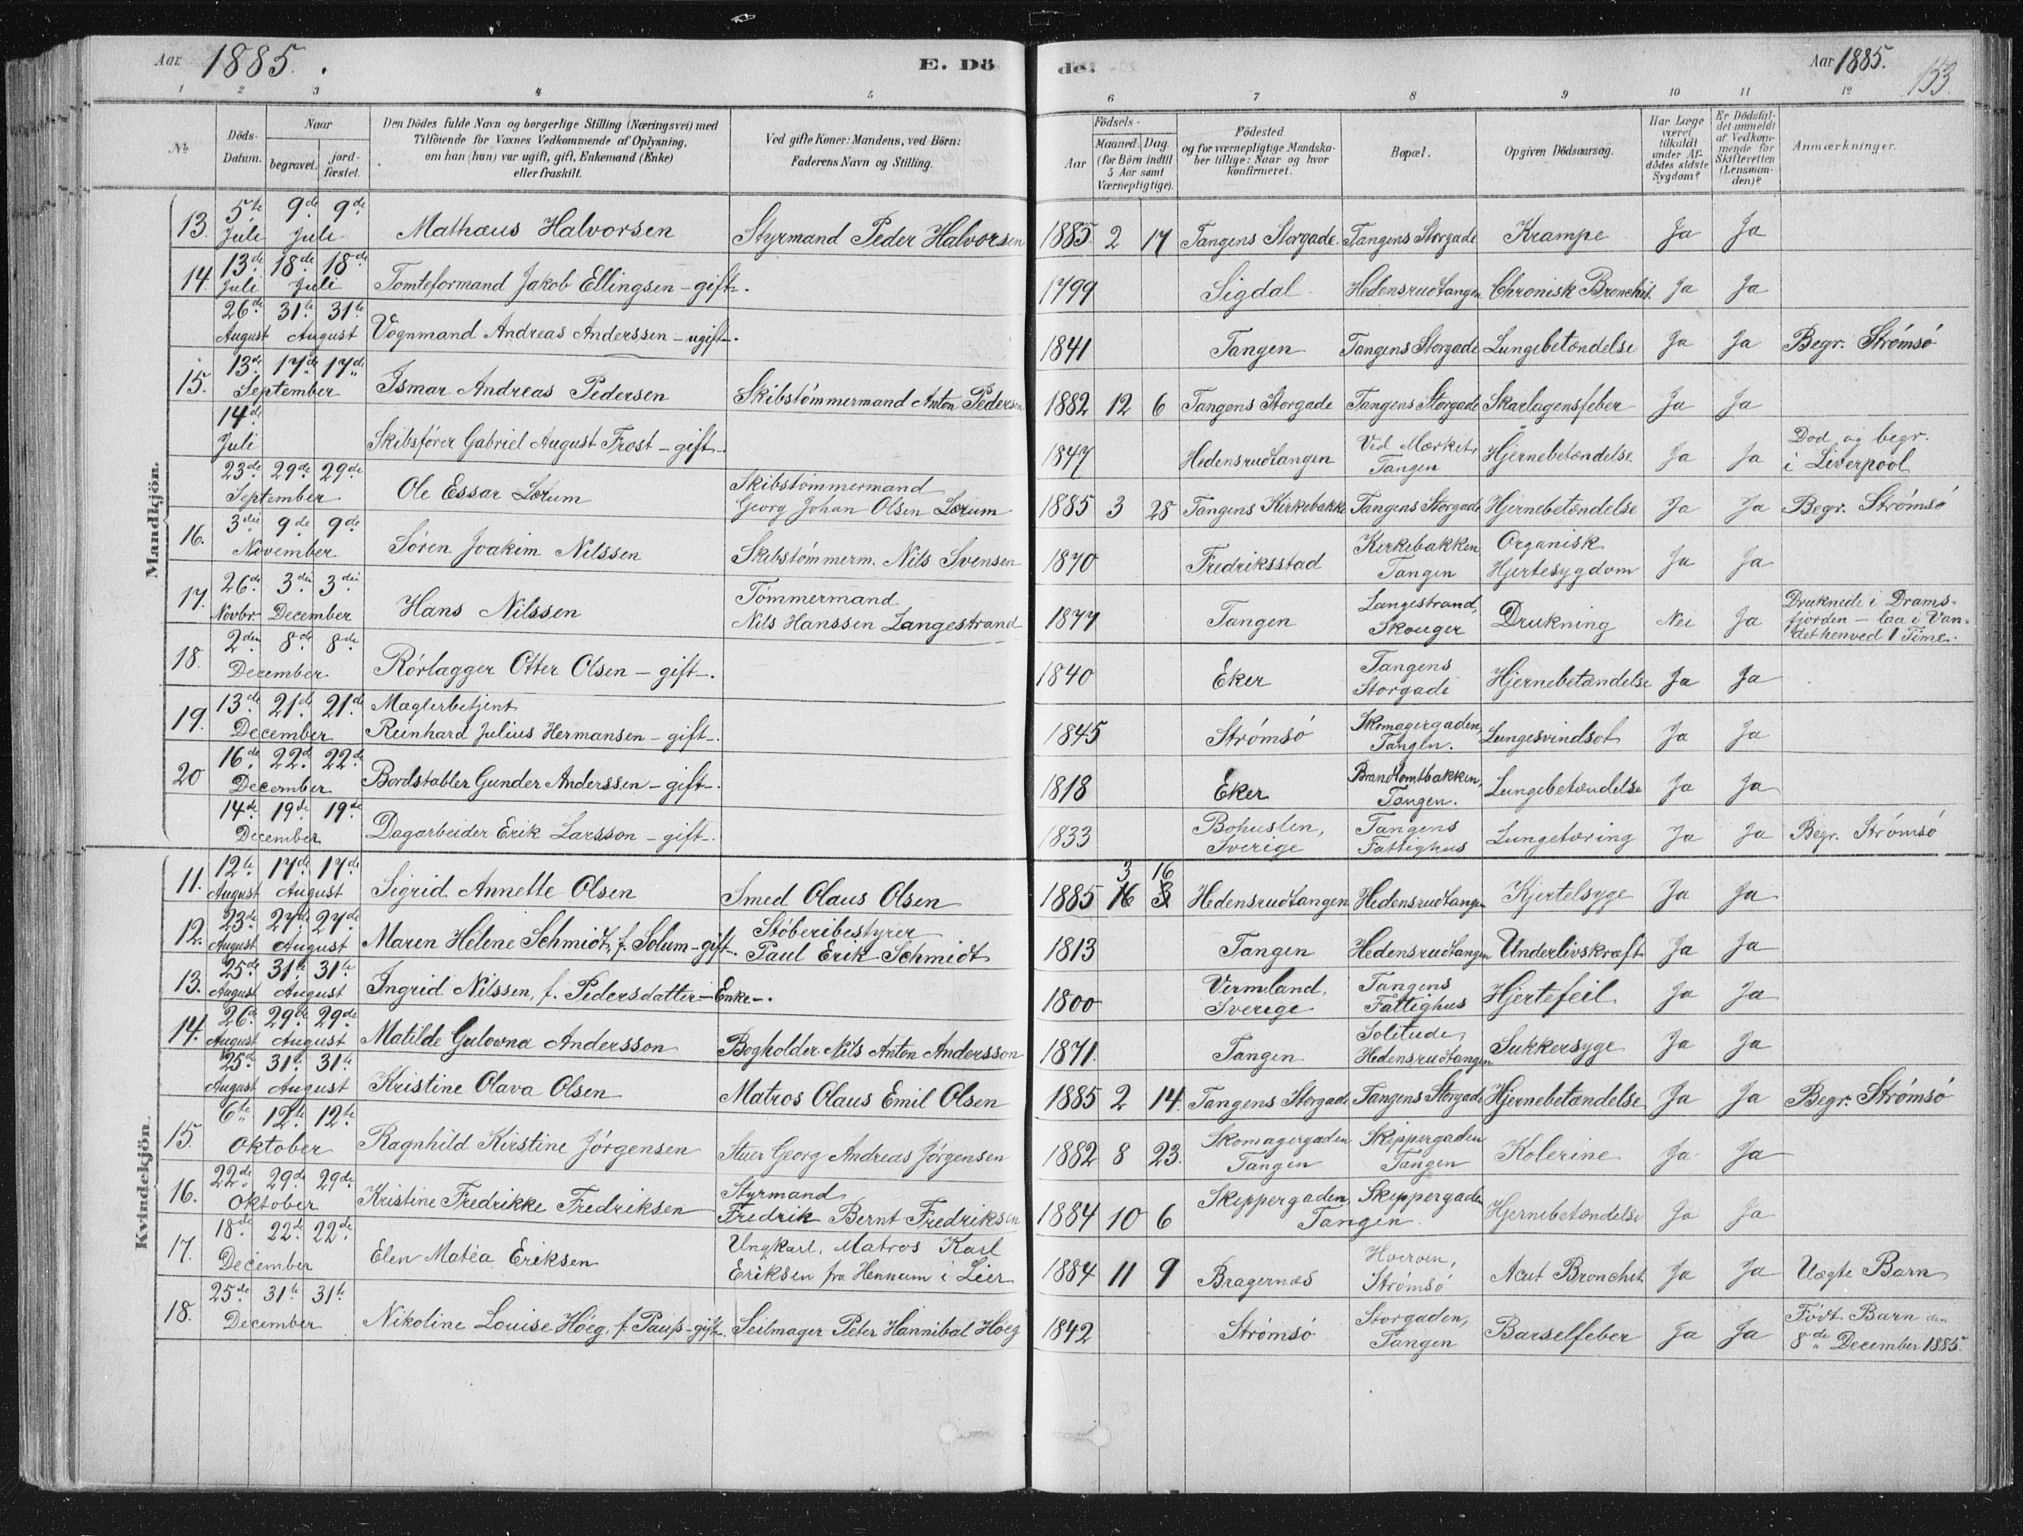 Aar 1885. E. Dö de. Aar 1885. 153.
1 2 3 4 5 6 7 8 9 10 11 12
No. Döds-Datum. Naar begravet. jordfæstet. Den Dödes fulde Navn og borgerlige Stilling (Næringsvei) med Tilföiende for Voxnes Vedkommende af Oplysning, om han (hun) var ugift, gift, Enkemand (Enke) eller fraskilt. Ved gifte Koner: Mandens, ved Börn: Faderens Navn og Stilling. Födsels- Aar Maaned. Dag. (for Börn indtil 5 Aar samt Værnepligtige). Födested og for værnepligtige Mandskaber tillige: Naar og hvor konfirmeret. Bopæl. Opgiven Dödsaarsag. Har Læge været tilkaldt under Afdödes sidste Sygdom? Er Dödsfaldet anmeldt af Vedkommende for Skifteretten (Lensmanden)? Anmærkninger.
Mandkjön.
13. 5te Juli 9de 9de Juli Mathæus Halvorsen Styrmand Peder Halvorsen 1885. 2 17 Tangens Storgade Tangens Storgade Krampe Ja Ja
14. 13de Juli 18de 18de Juli Tomteformand Jakob Ellingsen - gift -. 1799 Sigdal Hedensrudtangen Chronisk Bronchit. Ja Ja
26de August 31te 31te August Vognmand Andreas Anderssen - ugift -. 1841 Tangen Tangens Storgade Lungebetændelse Ja Ja Begr. Strømsø
15. 13de 17de 17de September Ismar Andreas Pedersen Skibstømmermand Anton Pedersen 1882 12 6 Tangens Storgade Tangens Storgade Skarlagensfeber Ja Ja
14de Juli Skibsfører Gabriel August Frost - gift - 1847 Hedensrudtangen Ved Mærket, Tangen Hjernebetændelse Ja Ja Død og begr. i Liverpool
23de 29de 29de September Ole Essar Lørum Skibstømmermand Georg Johan Olsen Lørum 1885 3 28 Tangens Kirkebakke Tangens Storgade Hjernebetændelse Ja Ja Begr. Strømsø
16. 3die 9de 9de November Søren Joakim Nilssen Skibstømmerm. Nils Svensen 1870 Fredriksstad Kirkebakken Tangen Organisk Hjertesygdom Ja Ja
17. 26de Novbr. 3die 3die December Hans Nilssen Tømmermand Nils Hanssen Langestrand 1877 Tangen Langestrand, Skouger Drukning Nei Ja Druknede i Dramsfjorden - laa i Vandet henved 1 Time.
18. 2den 8de 8de December Rørlægger Otter Olsen - gift -. 1840 Eker Tangens Storgade Hjernebetændelse Ja Ja
19. 13de 21de 21de December Mæglerbetjent Reinhard Julius Hermansen - gift -. 1845 Strømsø Skomagergaden, Tangen. Lungesvindsot Ja Ja
20 16de 22de 22de December Bordstabler Gunder Anderssen - gift -. 1818 Eker Brandtomtbakken, Tangen. Lungebetændelse Ja Ja
14de 19de 19de December Dagarbeider Erik Larsson - gift -. 1833 Bohuslen, Sverige Tangens Fattighus Lungetæring Ja Ja Begr. Strømsø
Kvindekjön.
11. 12te August 17de 17de August Sigrid Annette Olsen Smed Olaus Olsen 1885 3 16 Hedensrudtangen Hedensrudtangen Kjertelsyge Ja Ja
12. 23de August 27de 27de August Maren Helene Schmidt, f. Solum - gift -. Støberibestyrer Paul Erik Schmidt 1813 Tangen Hedensrudtangen Underlivskræft Ja Ja
13. 25de August 31te 31te August Ingrid Nilssen, f. Pedersdatter - Enke -. 1800 Vermland, Sverige Tangens Fattighus Hjertefeil Ja Ja
14. 26de August 29de 29de August Matilde Gulovna Andersson Bogholder Nils Anton Andersson 1871. Tangen Solitude, Hedensrudtangen Sukkersyge Ja Ja
25de August 31te 31te August Kristine Olava Olsen Matros Olaus Emil Olsen 1885 2 14. Tangens Storgade Tangens Storgade Hjernebetændelse Ja Ja Begr. Strømsø
15. 6te 12te 12te Oktober Ragnhild Kirstine Jørgensen Stuer Georg Andreas Jørgensen 1882 8 23. Skomagergaden Tangen Skippergaden Tangen Kolerine Ja Ja
16. 22de 29de 29de Oktober Kristine Fredrikke Fredriksen Styrmand Fredrik Bernt Fredriksen 1884 10 6 Skippergaden, Skippergaden Tangen Hjernebetændelse Ja Ja
17. 18de 22de 22de December Elen Matéa Eriksen Ungkarl, Matros Karl Eriksen fra Hennum i Lier 1884 11 9 Bragernæs Strømsø Acut Bronchit Ja Ja Uægte Barn
18. 25de 31te 31te December Nikoline Louise Höeg, f. Pauss - gift - Seilmager Peter Hannibal Höeg 1842 Strømsø Storgaden, Tangen Barselfeber Ja Ja Født Barn den 8de December 1885.